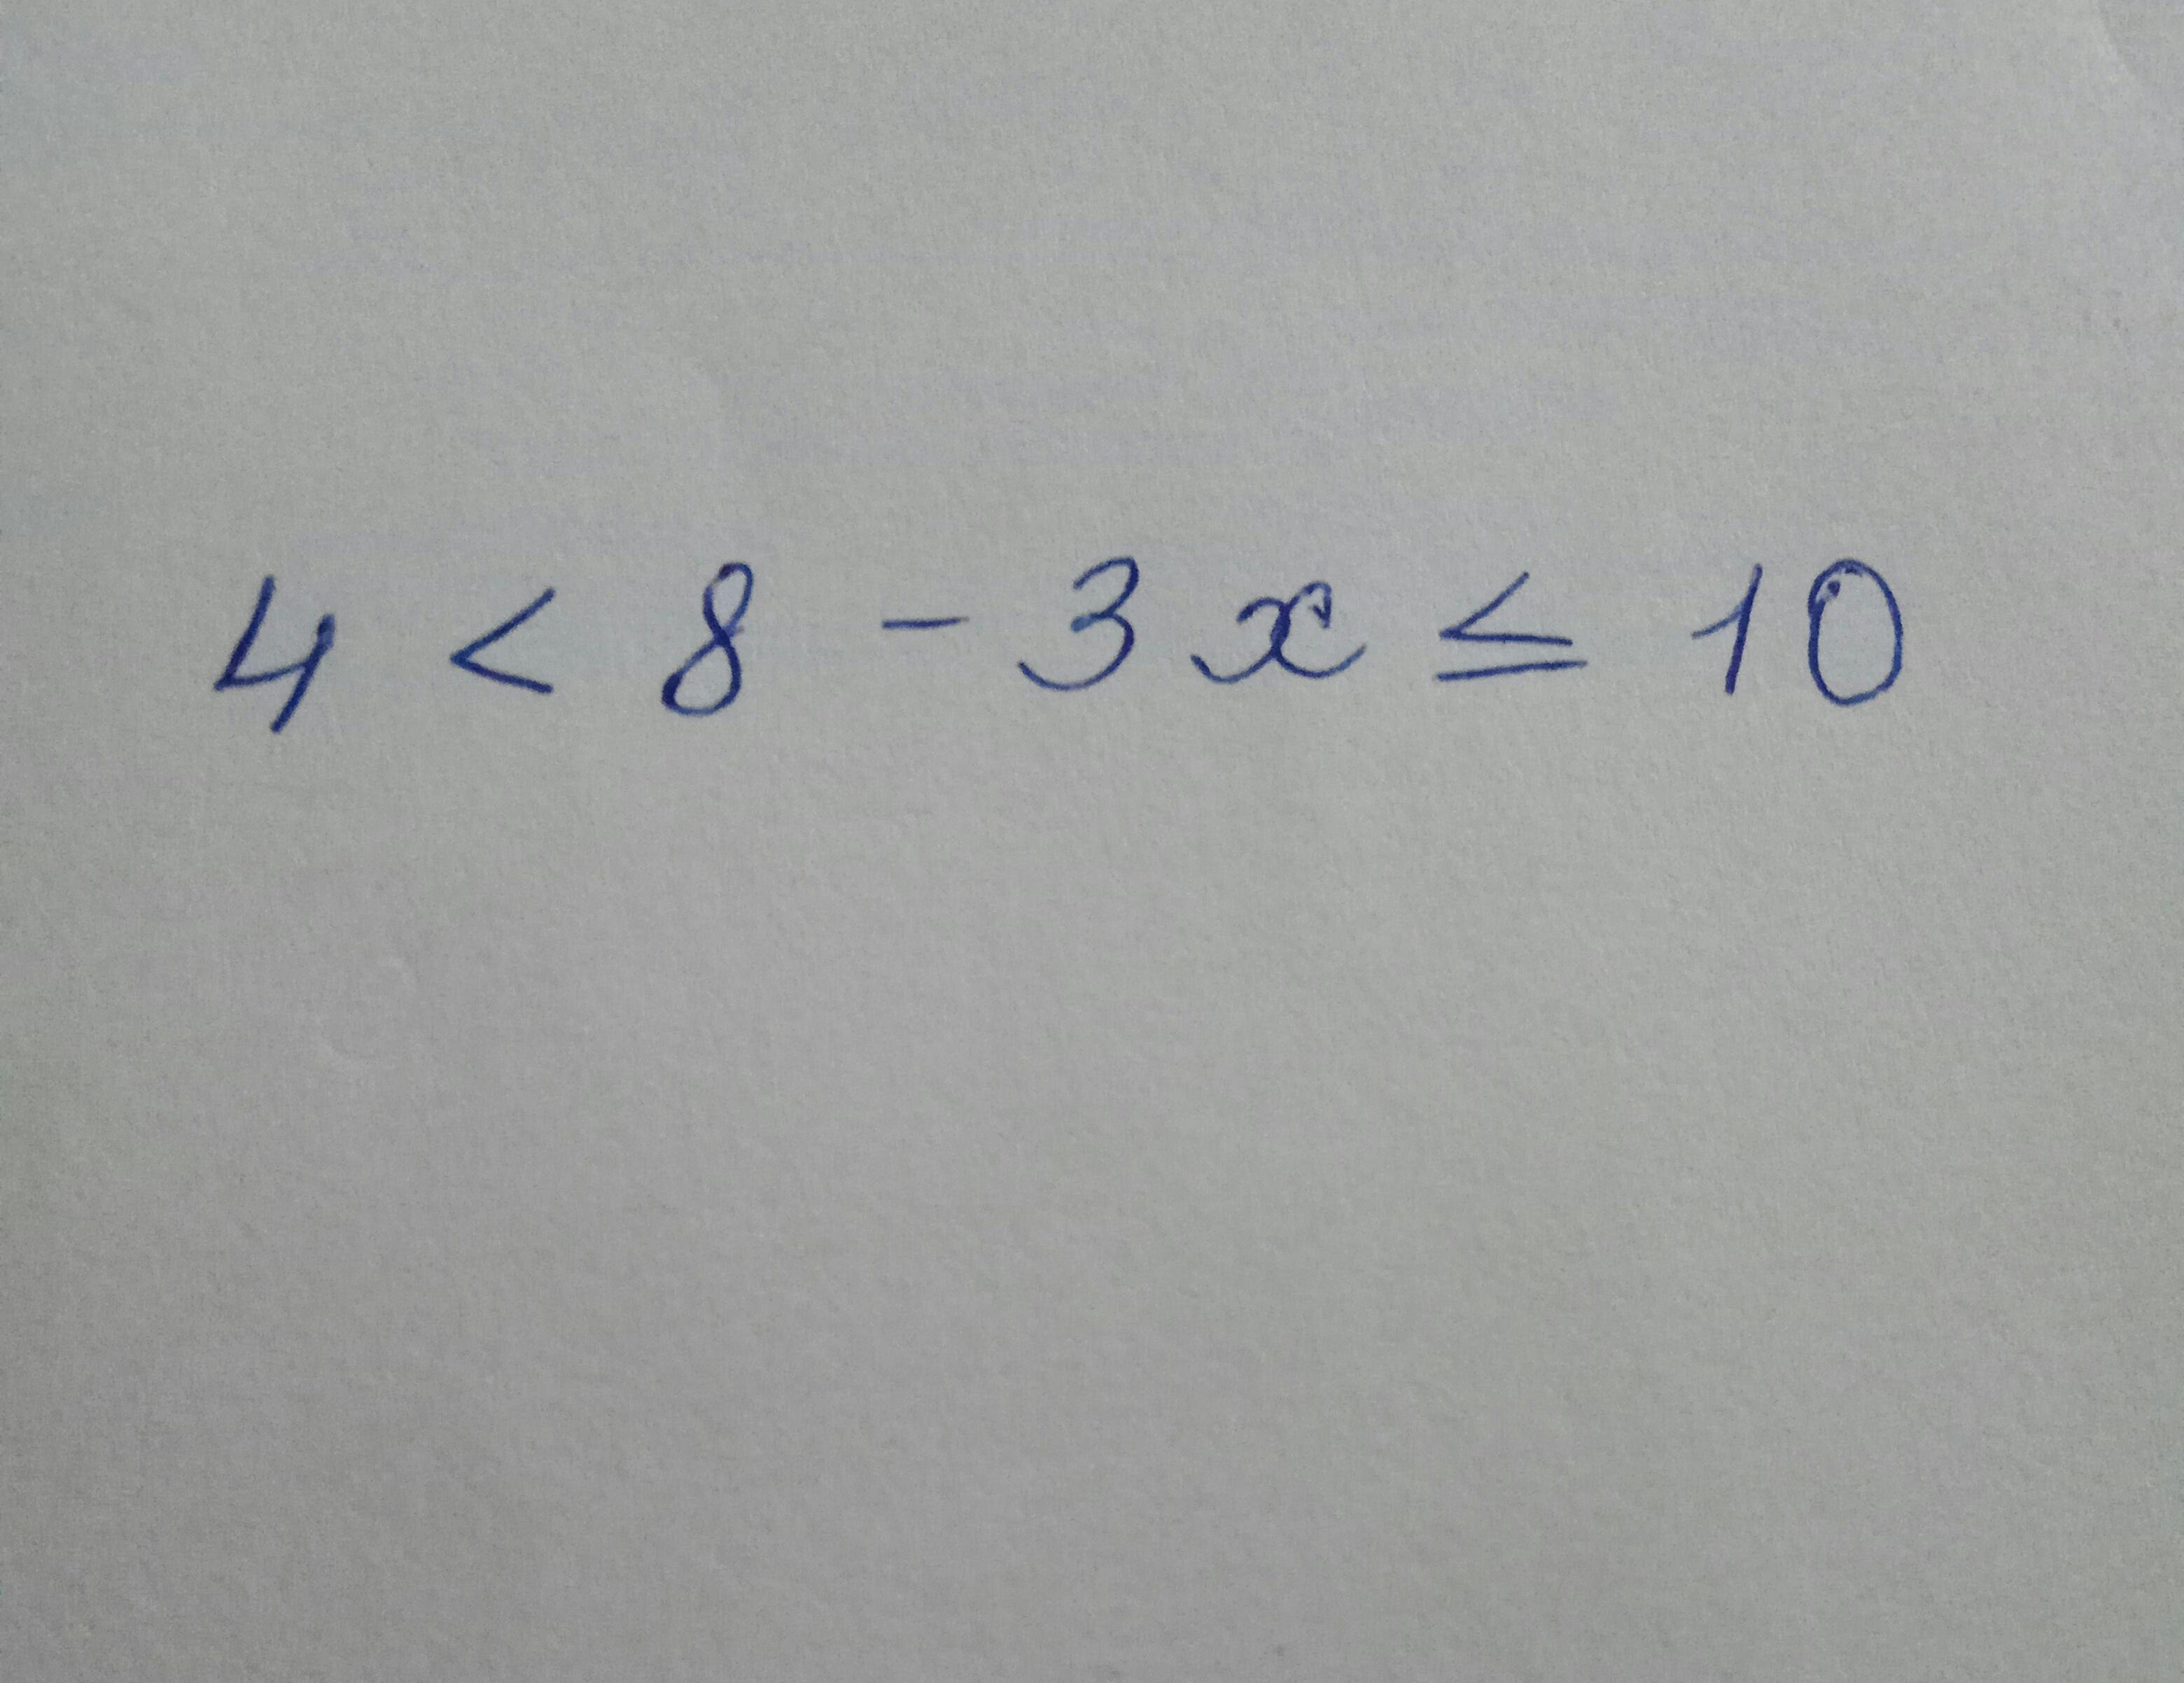 4 < 8 - 3x ≤ 10